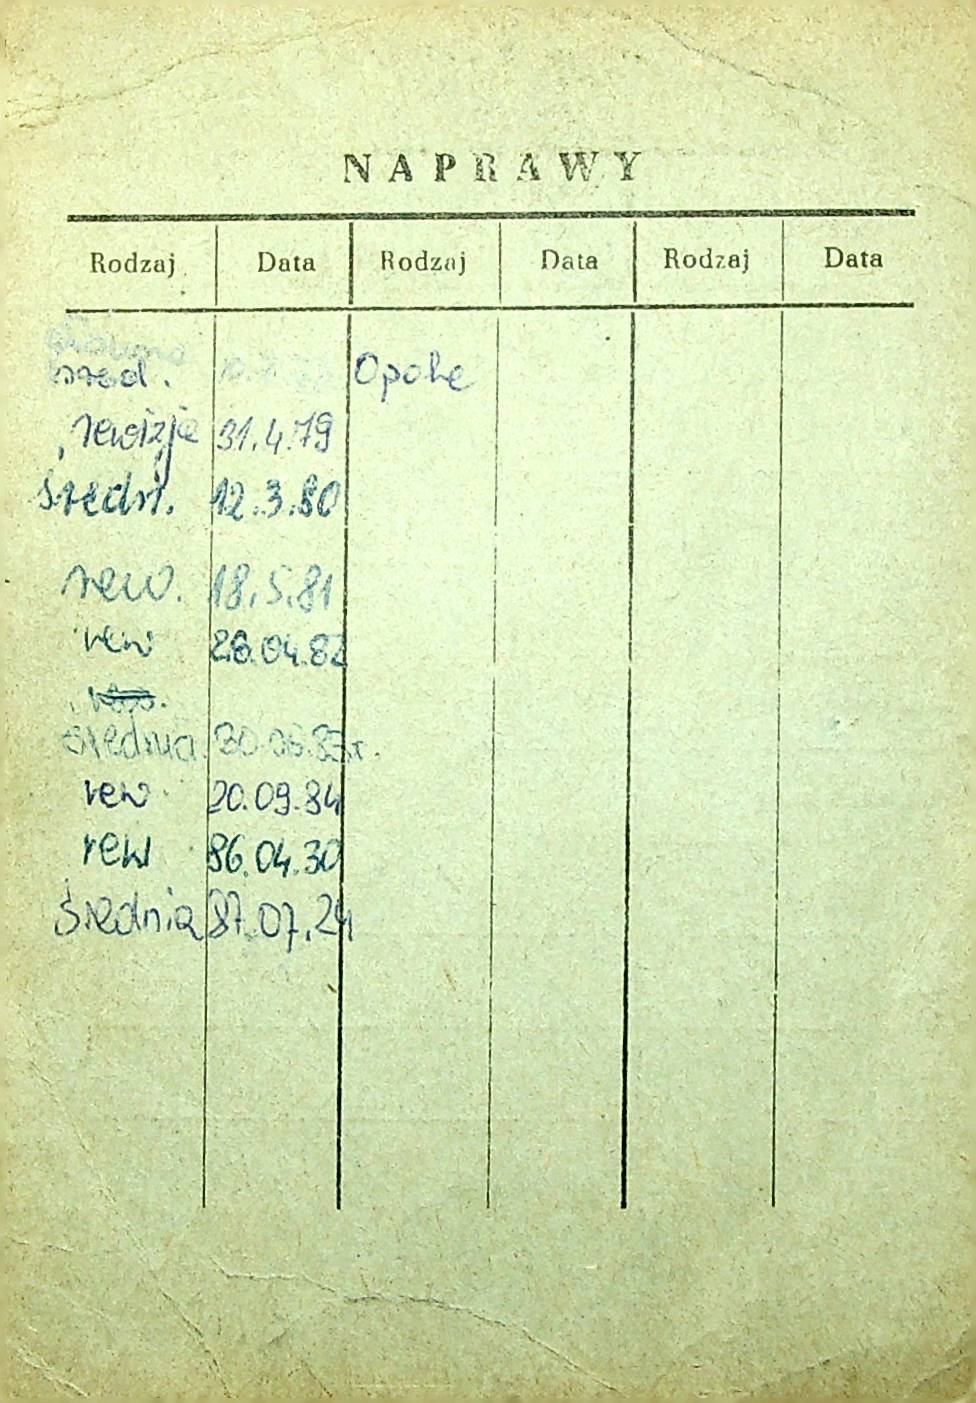 NAPRAWY
Rodzaj Data Rodzaj Data Rodzaj Data
śred. Opole
rewizja 31.4.79
średn. 12.3.80
rew. 18.5.81
rew 28.04.82
średnia 30.06.83r.
rew 20.09.84
rew 86.04.30
średnia 87.07.24